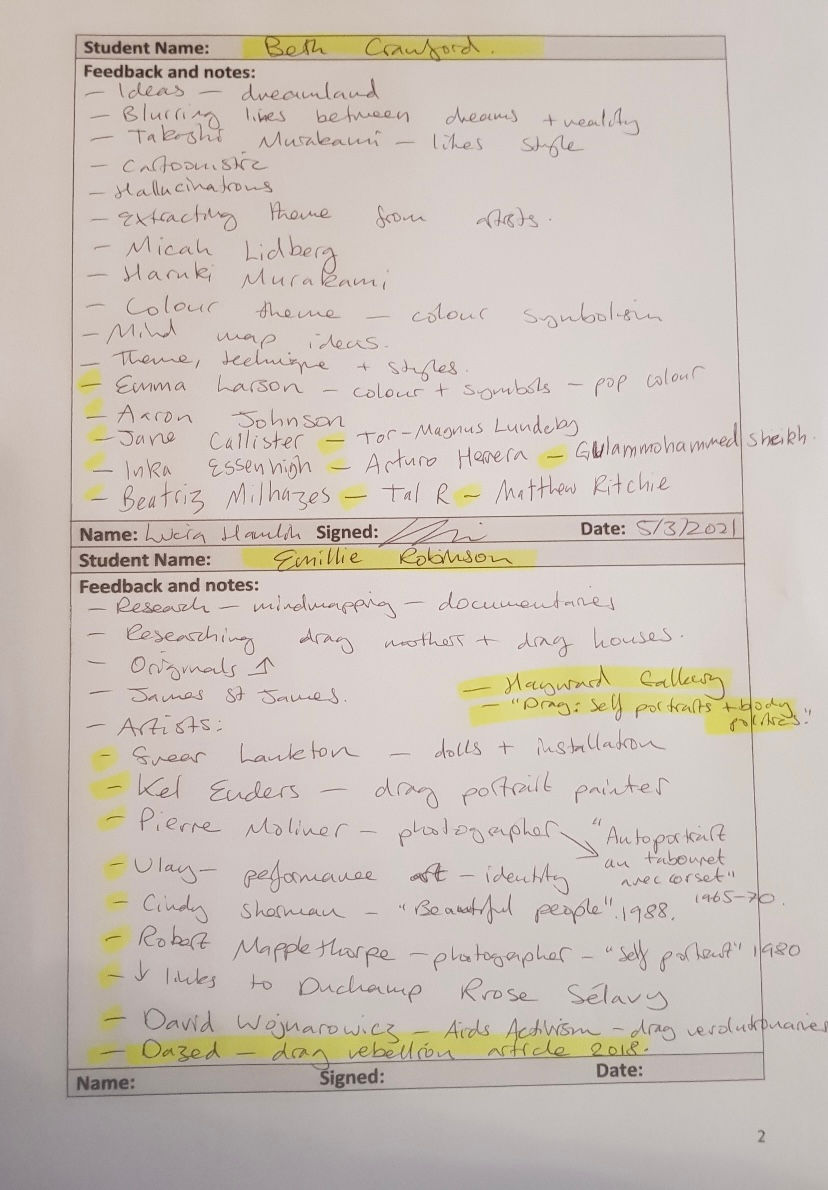 Student Name: Beth Crawford.
Feedback and notes:
– Ideas – dreamland
– Blurring lines between dreams + reality
– Takashi Murakami – likes style
– Cartoonistic
– Hallucinations
– Extracting theme from artists.
– Micah Lidberg
– Haruki Murakami
– Colour theme – colour symbolism
– Mind map ideas.
– Theme, technique + styles.
– Emma Larson – colour + symbols – pop colour
– Aaron Johnson
– Jane Callister – Tor-Magnus Lundeby
– Inka Essenhigh – Arturo Herrera – Gulammohammed Sheikh.
– Beatriz Milhazes – Tal R – Matthew Ritchie
Name: Lucia Signed: Date: 5/3/2021
Student Name: Emillie Robinson
Feedback and notes:
– Research – mindmapping – documentaries
– Researching drag mothers + drag houses.
– Originals ↑
– James St James.
– Hayward Gallery
– "Drag: Self portraits + body politics."
– Artists:
– Greer Lankton – dolls + installation
– Kel Enders – drag portrait painter
– Pierre Moliner – photographer ↘ "Autoportrait
au tabouret
avec corset"
1965-70.
– Ulay – performance art – identity
– Cindy Sherman – "Beautiful people". 1988.
– Robert Mapplethorpe – photographer – "Self portrait" 1980
– ↓ links to Duchamp Rrose Sélavy
– David Wojnarowicz – Aids Activism – drag revolutionaries
– Dazed – drag rebellion article 2018.
Name: Signed: Date:
2